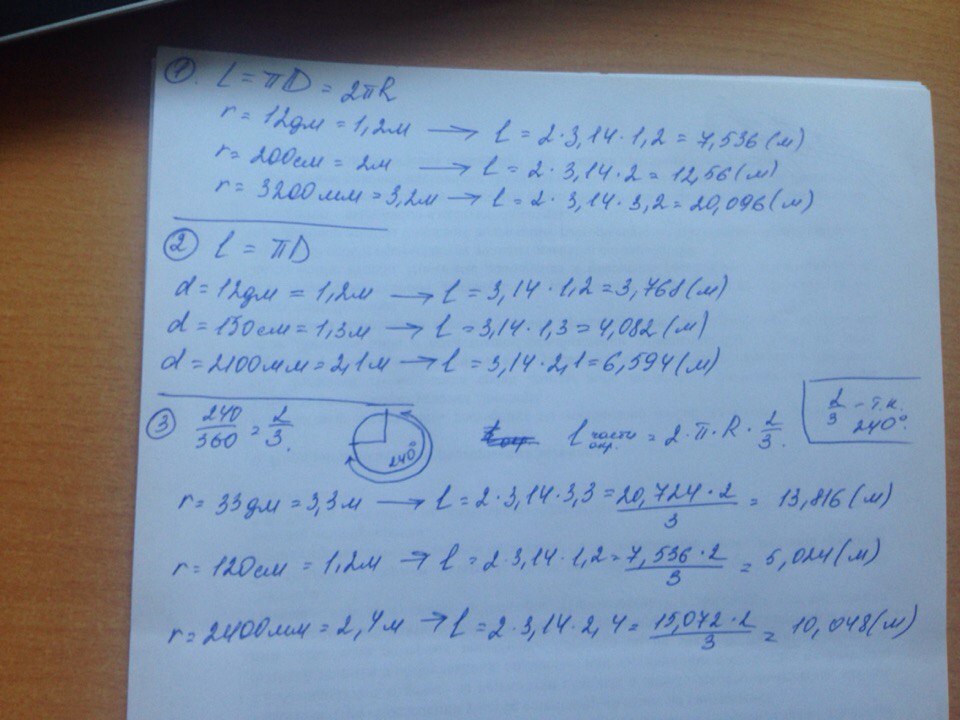 1. L = πD = 2πR
r = 12дм = 1,2м → l = 2·3,14·1,2 = 7,536(м)
r = 200см = 2м → l = 2·3,14·2 = 12,56(м)
r = 3200мм = 3,2м → l = 2·3,14·3,2 = 20,096(м)
2 l = πD
d = 12дм = 1,2м → l = 3,14·1,2 = 3,768(м)
d = 130см = 1,3м → l = 3,14·1,3 = 4,082(м)
d = 2100мм = 2,1м → l = 3,14·2,1 = 6,594(м)
3 240/360 = 2/3. 240° l части окр. = 2·π·R·2/3. 2/3 - т.к. 240°.
r = 33дм = 3,3м → l = 2·3,14·3,3 = 20,724·2/3 = 13,816(м)
r = 120см = 1,2м → l = 2·3,14·1,2 = 7,536·2/3 = 5,024(м)
r = 2400мм = 2,4м → l = 2·3,14·2,4 = 15,072·2/3 = 10,048(м)